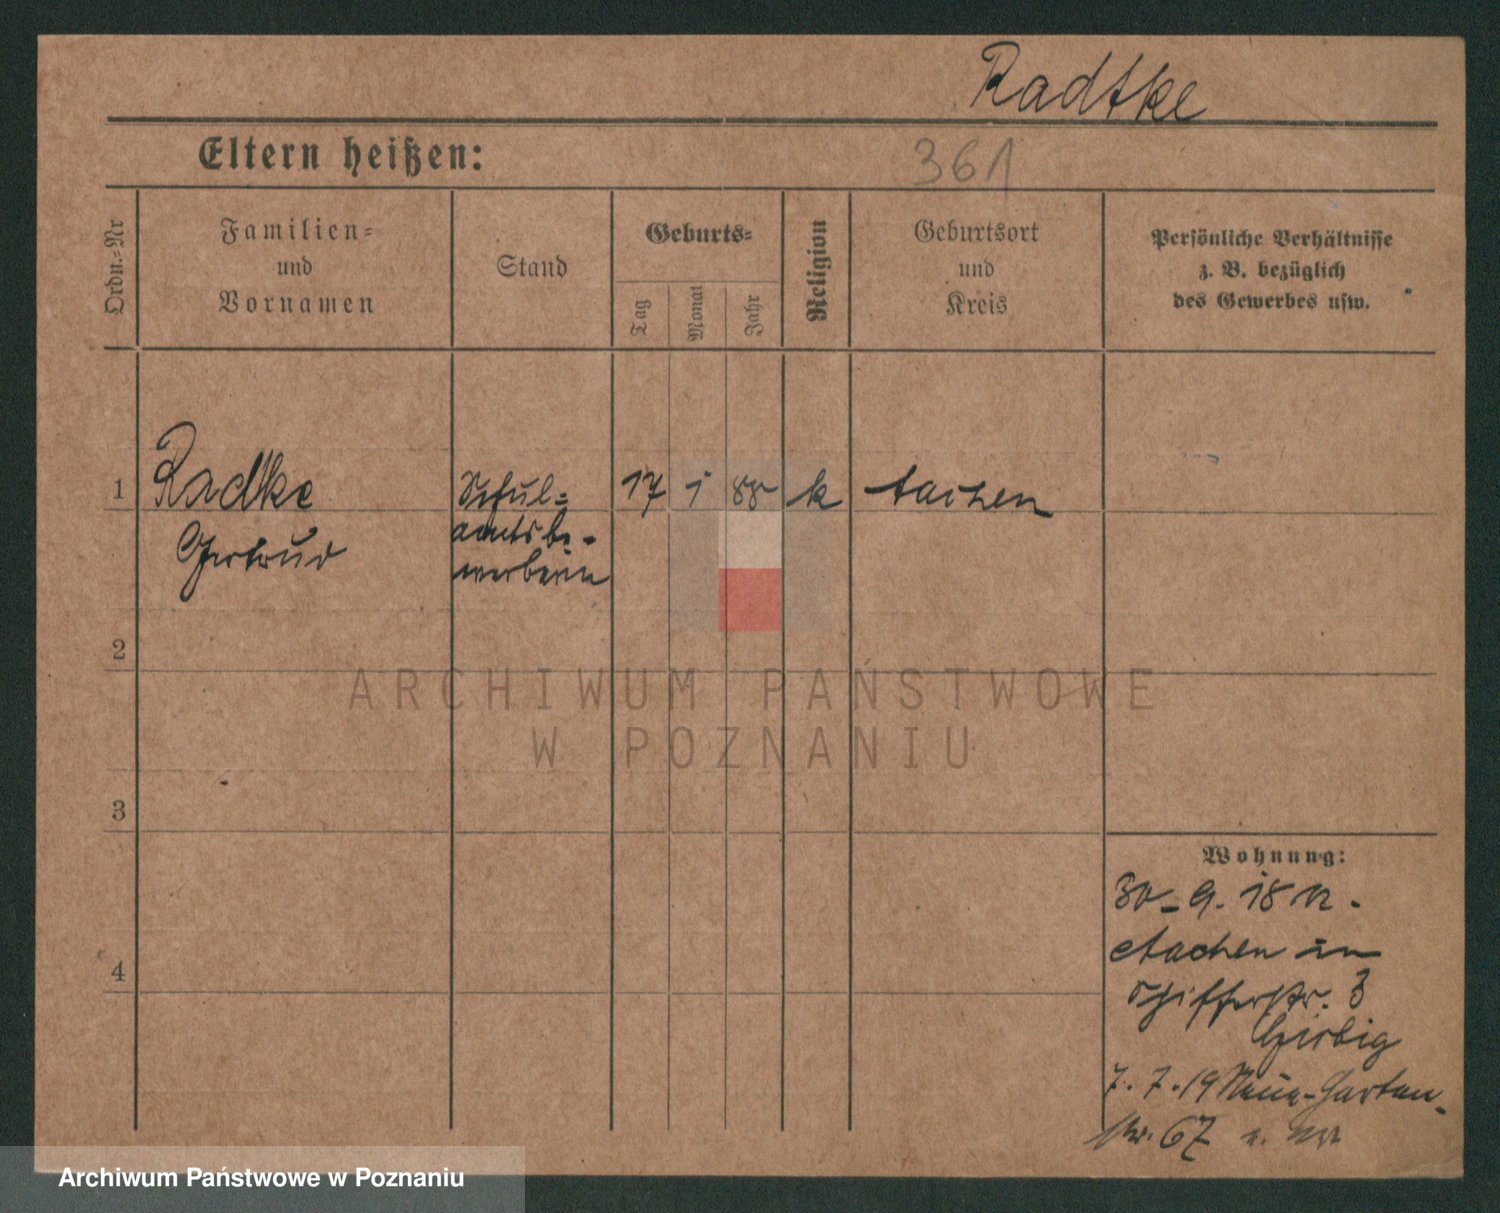 Radtke
Eltern heißen:
361
Ordn.-Nr
Familien-
und
Vornamen
Stand
Geburts-
Tag
Monat
Jahr
Religion
Geburtsort
und
Kreis
Persönliche Verhältnisse
z. B. bezüglich
des Gewerbes usw.
1
Radtke
Gertrud
Schul-
amtsbe-
werberin
17
1
88
k
Aachen
2
3
4
Wohnung:
30-9.18 n.
Aachen
3
7.7.19 Neue-Garten-
str. 67
ARCHIWUM PAŃSTWOWE
W POZNANIU
Archiwum Państwowe w Poznaniu